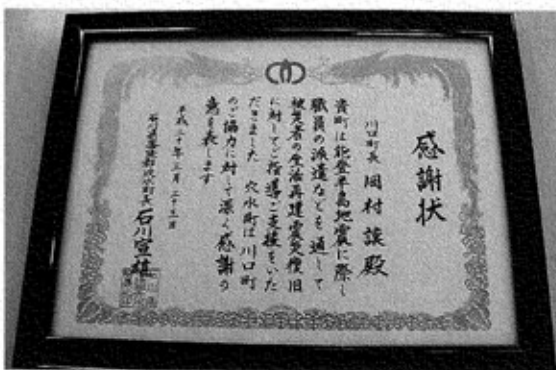 感謝状
川口町長 岡村譲殿
貴町は能登半島地震に際し
職員の派遣などを通して
被災者の生活再建震災復旧
に対してご指導ご支援をいた
だきました 穴水町は川口町
のご協力に対して深く感謝の
意を表します
平成二十年三月二十五日
石川県鳳珠郡穴水町長 石川宣雄